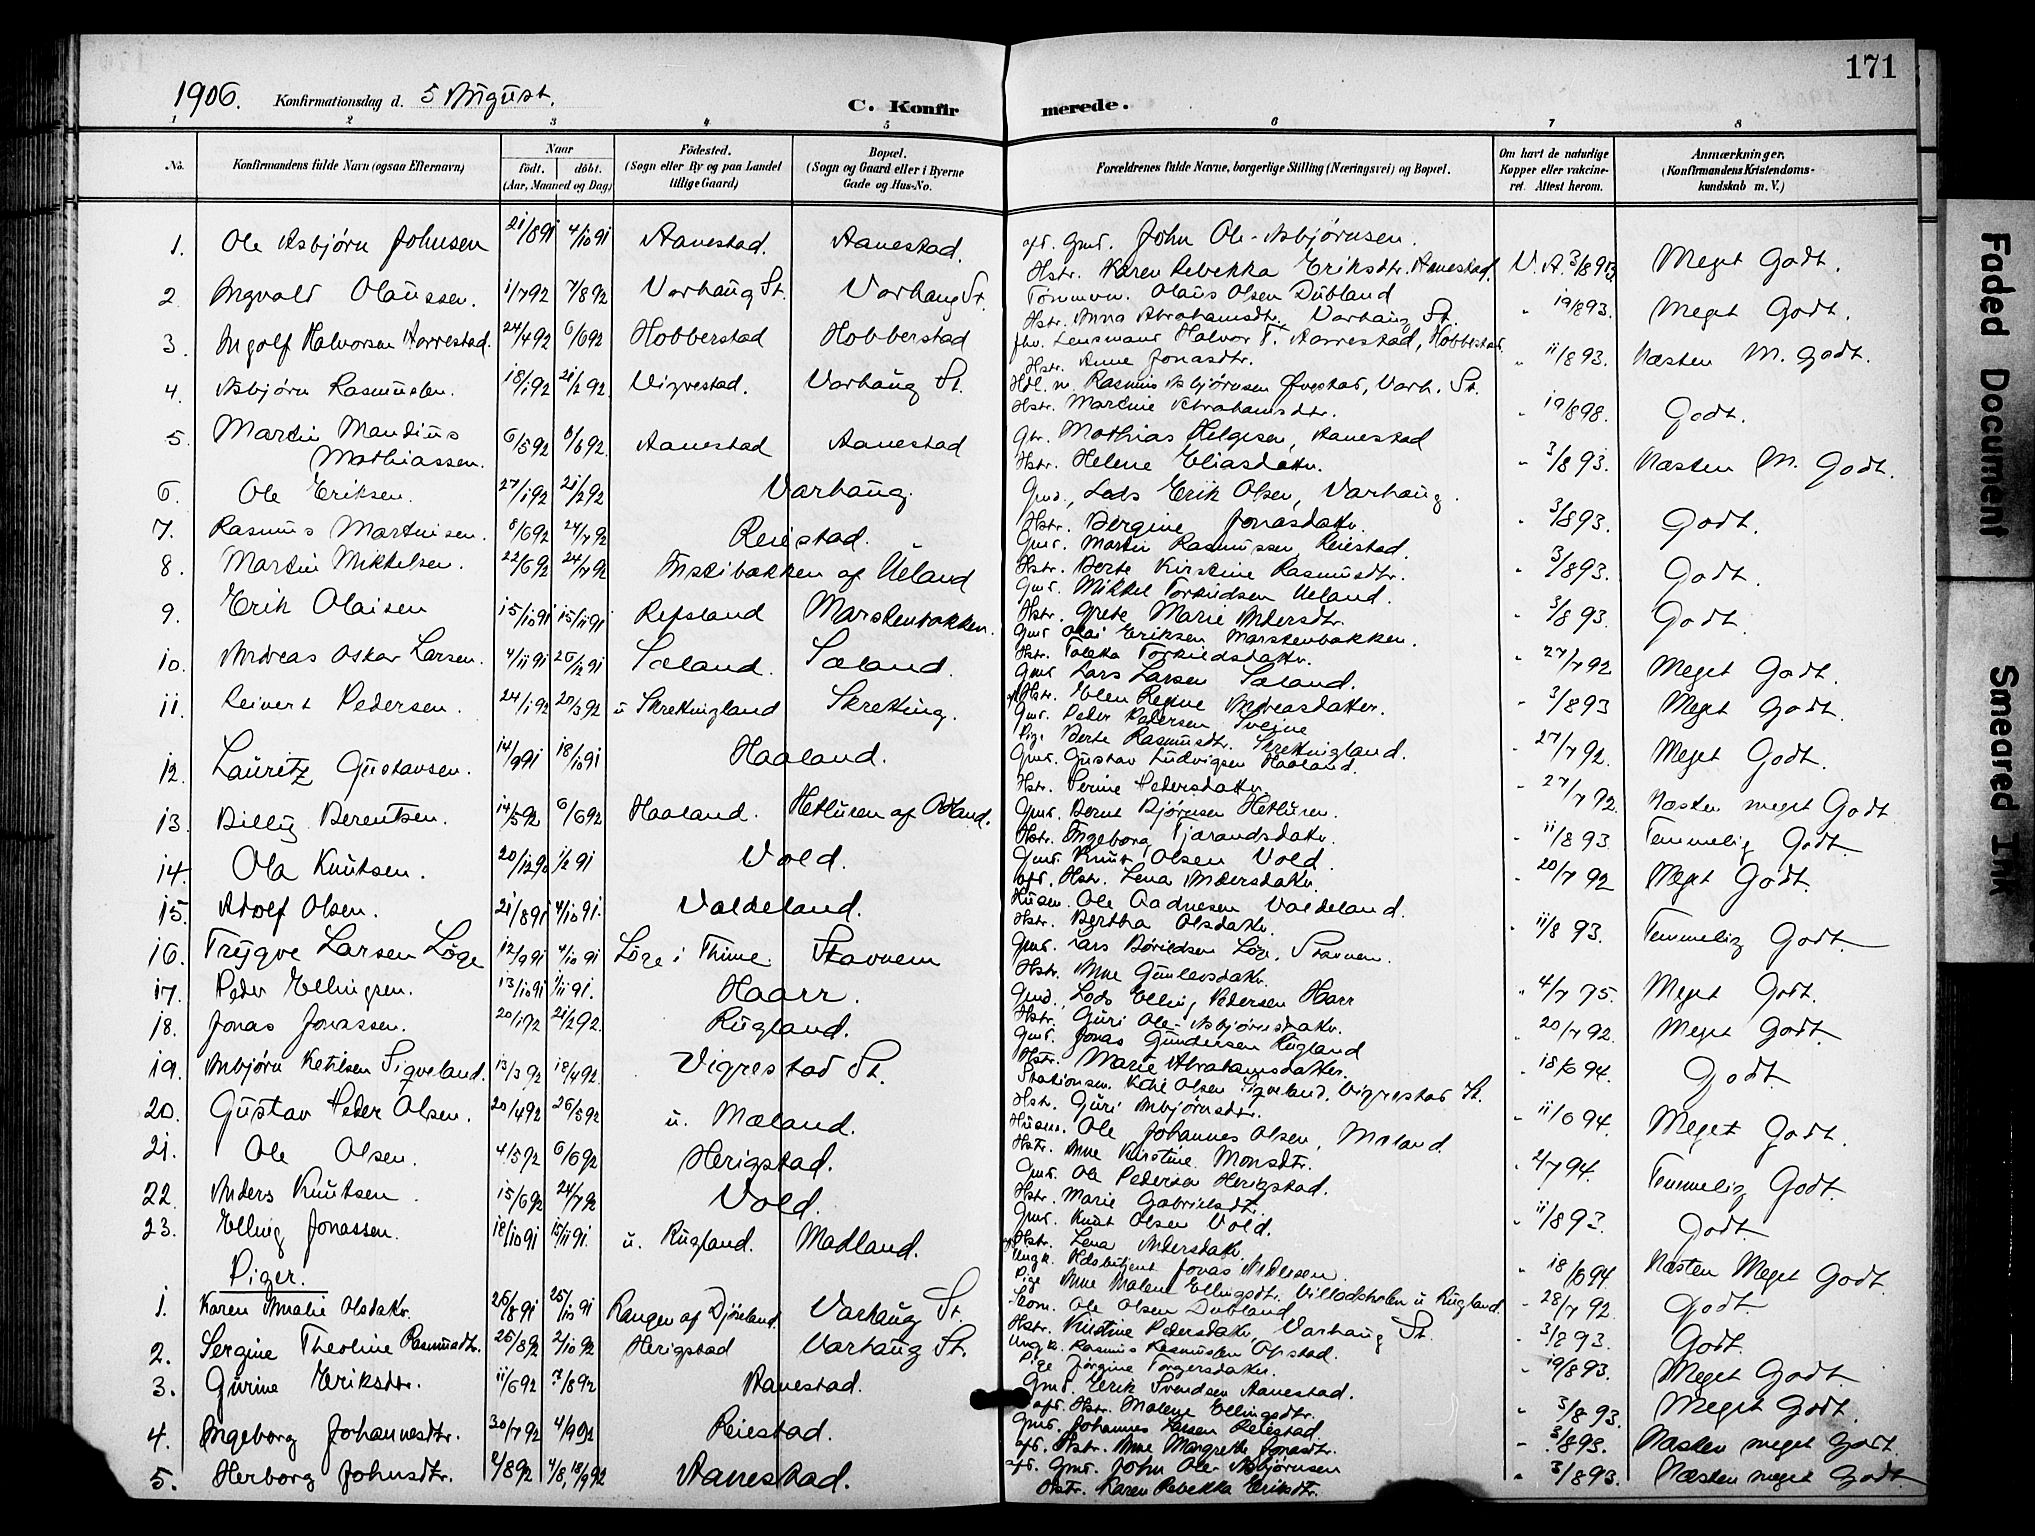 171
1906. Konfirmationsdag d. 5 August.
C. Konfirmerede.
1 2 3 4 5 6 7 8
No. Konfirmandens fulde Navn (ogsaa Efternavn) Naar født. døbt. (Aar, Maaned og Dag) Fødested. (Sogn eller By og paa Landet tillige Gaard) Bopæl. (Sogn og Gaard eller i Byerne Gade og Hus-No. Forældrenes fulde Navne, borgerlige Stilling (Næringsvei) og Bopæl. Om havt de naturlige Kopper eller vakcineret. Attest herom. Anmærkninger. (Konfirmandens Kristendomskundskab m. V.)
1. Ole Asbjørn Johnsen 21/8 91 4/10 91 Aanestad. Aanestad. afd. Gmd. John Ole-Asbjørnsen.
Hstr. Karen Rebekka Eriksdtr. Aanestad. V. A. 3/8 93 Meget Godt.
2. Ingvald Olaussen. 1/7 92 7/8 92 Varhaug St. Varhaug St. Tømmerm. Olaus Olsen Dubland
Hstr. Anna Abrahamsdtr. Varhaug St. " 19/8 93. Meget Godt.
3. Ingolf Halvorsen Aarrestad. 24/4 92 6/6 92 Hobberstad Hobberstad fhv. Lensmand Halvor T. Aarrestad, Hobberstad.
Hstr. Anne Jonasdtr. " 11/8 93. Næsten M. Godt.
4. Asbjørn Rasmussen. 18/1 92 21/2 92 Vigrestad. Varhaug St. Hdl. m. Rasmus Asbjørnsen Øvestad, Varh. St.
Hstr. Martine Abrahamsdtr. " 19/8 98. Godt.
5. Martin Mandius Mathiassen. 6/5 92 6/6 92. Aanestad Aanestad Gbr. Mathias Helgesen, Aanestad
Hstr. Helene Eliasdatr. " 3/8 93. Næsten M. Godt.
6. Ole Eriksen. 27/1 92 21/2 92 Varhaug. Gmd., Lods Erik Olsen, Varhaug.
Hstr. Bergine Jonasdatr. " 3/8 93. Godt.
7. Rasmus Martinsen. 8/6 92 24/7 92 Reiestad. Gmd. Martin Rasmussen Reiestad.
Hstr. Berte Kirstine Rasmusdtr. " 3/8 93. Godt.
8. Martin Mikkelsen. 22/6 92 24/7 92 Fuskibakken af Ueland Gmd. Mikkel Torkildsen Ueland.
Hstr. Grete Marie Andersdtr. " 3/8 93. Godt.
9. Erik Olaisen 15/10 91 15/11 91 Refsland Marskenbakken. Gmd Olai Eriksen Marskenbakken.
Hstr. Tolleka Torkildsdatr. " 27/7 92
10. Andreas Oskar Larsen. 4/11 91 26/12 91 Sæland. Sæland. Gmd Lars Larsen Sæland. Meget Godt.
Hstr. Elen Regine Andreasdatter. " 3/8 93
11. Reivert Pedersen. 24/1 92 20/3 92 u Skretingland Skreting. Gmd. Peder Pedersen Tveine Meget Godt.
Pige Berte Rasmusdtr. Skretingland. " 27/7 92.
12. Lauritz Gustavsen. 14/9 91 18/10 91 Haaland. Gmd. Gustav Ludvigsen Haaland. Meget Godt.
Hstr. Serine Pedersdatr. " 27/7 92.
13. Billig Berentsen. 14/5 92 6/6 92 Haaland. Hetluren af Odland. Gmd. Bernt Bjørnsen Hetluren. Næsten meget Godt
Hstr. Ingeborg Tjærandsdatr. " 11/8 93.
14. Ole Knutsen. 20/12 90 1/2 91 Vold. Gmd. Knut Olsen Vold. Temmelig Godt.
afd. Hstr. Lena Andersdatr. " 20/7 92 Meget Godt.
15. Adolf Olsen. 21/8 91 4/10 91. Valdeland. Husm. Ole Aadnesen Valdeland.
Hstr. Bertha Olsdatr. " 11/8 93. Temmelig Godt.
16. Trygve Larsen Løge 12/9 91 4/10 91 Løge i Thime Stavnem Gmd. Lars Børildsen Løge, Stavnem.
Hstr. Anne Gunlevsdatr.
17. Peder Ellingsen. 13/10 91 1/11 91. Haarr. Gmd., Lods Elling Pedersen Haarr " 4/7 95. Meget Godt.
Hstr. Guri Ole-Asbjørnsdatr.
18. Jonas Jonassen. 20/1 92 21/2 92. Rugland. Gmd. Jonas Gundersen Rugland " 20/7 92. Meget Godt.
Hstr. Marie Abrahamsdatter.
19. Asbjørn Ketilsen Sigveland. 13/3 92 18/4 92. Vigrestad St. Stationsm. Ketil Olsen Sigveland, Vigrestad St. " 18/6 94. Godt.
Hstr. Guri Asbjørnsdtr.
20. Gustav Peder Olsen. 20/4 92 26/5 92 u. Mæland. Husm. Ole Johannes Olsen, Mæland. " 11/6 94. Meget Godt.
Hstr. Anne Kirstine Monsdtr.
21. Ole Olsen. 4/5 92 6/6 92 Herigstad. Gmd. Ole Pedersen Herigstad. " 2/7 94. Temmelig Godt.
Hstr. Marie Gabrielsdtr.
22. Anders Knutsen. 15/6 92 24/7 92 Vold. Gmd. Knut Olsen Vold. " 11/8 93. Godt.
Hstr. Lena Andersdatr.
23. Elling Jonassen. 18/10 91 15/11 91. u. Rugland. Madland. Ungk. Jonas Andersen. " 18/6 94 Næsten Meget Godt.
Pige Anne Malene Ellingsdtr. Villadsholen u Rugland.
Piger.
1. Karen Amalie Olsdatr. 26/8 91 25/10 91 Rangen af Djøseland Varhaug St. Skom. Ole Olsen Dubland " 28/7 92. Godt.
Hstr. Kirstine Pedersdatr, Varhaug St.
2. Sergine Theoline Rasmusdtr. 26/8 92 2/10 92 Herigstad Varhaug St. Ungk. Rasmus Rasmussen Opstad. " 3/8 93. Godt.
Pige Jørgine Torgersdatr.
3. Gurine Eriksdtr. 11/6 92 7/8 92 Aanestad. Gmd. Erik Svendsen Aanestad. " 19/8 93. Meget Godt.
afd. Hstr. Malene Ellingsdtr.
4. Ingeborg Johannesdtr. 30/7 92 4/9 92 Reiestad. Gmd. Johannes Larsen Reiestad. " 3/8 93. Meget Godt.
afd. Hstr. Anne Margrethe Jonasdtr. " 3/8 93. Næsten meget Godt.
5. Herborg Johnsdtr. 2/8 92 4/8, 18/9 92 Aanestad. afd. Gmd. John Ole Asbjørnsen
Hstr. Karen Rebekka Eriksdtr. " 3/8 93. Næsten meget Godt.
Faded Document
Smeared Ink